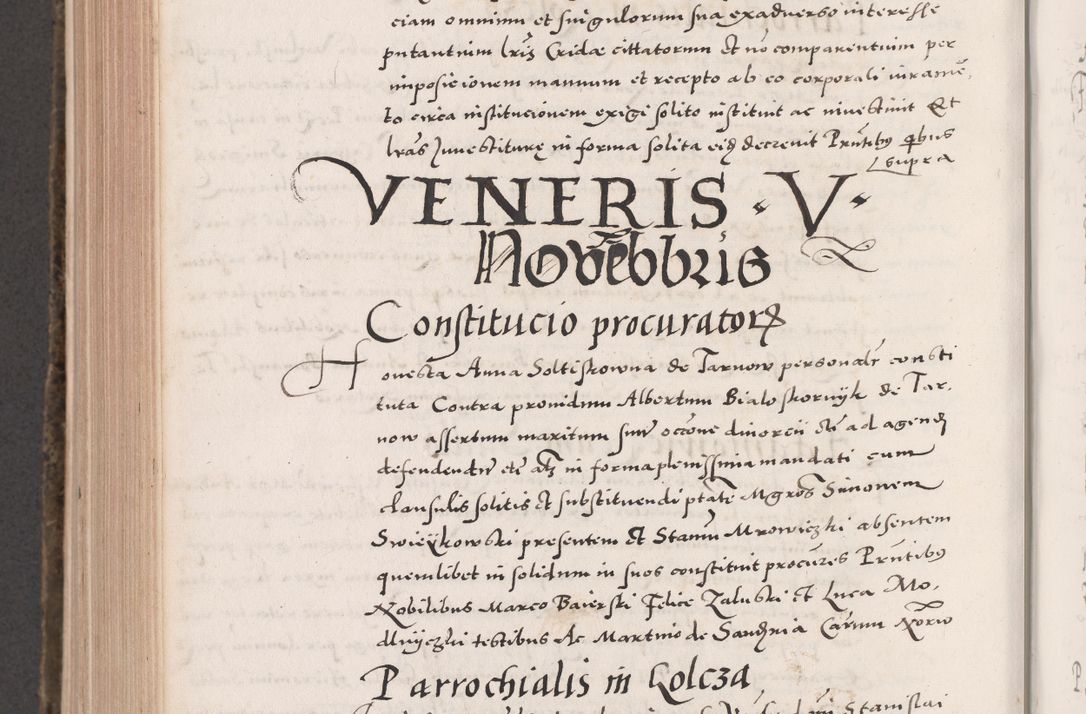 ciam omnium et singulorum sua exadverso interesse
putantium lrīs Cridae cittatorum et nō comparentium per
imposicionem manuum et recepto ab eo corporali iuramē,
to circa institucionem exigi solito instituit ac investivit Et
lrās Investiturę in forma solita eiq decrevit Pn̄tibq qbus
supra
VENERIS · V ·
Novēbbris
Constitucio procuratorꝝ
Honesta Anna Soltiskowna de Tarnow personalr consti
tuta Contra providum Albertum Bialoskornyk de Tar,
now assertum maritum suum occōne divorcii etc ad agend
defendendum etc atq in forma plenissima mandati cum
clausulis solitis et substituendi ptate Mgros Simonem
Swieykowski presentem et Stanīu Mrowiczki absentem
quemlibet in solidum in suos constituit procures Pn̄tibq
Nobilibus Marco Baierski Felice Zaluski et Luca Mo,
dliyczki testibus Ac Martino de Sandzia Carum Norio
Parrochialis in Golcza
Stanislai